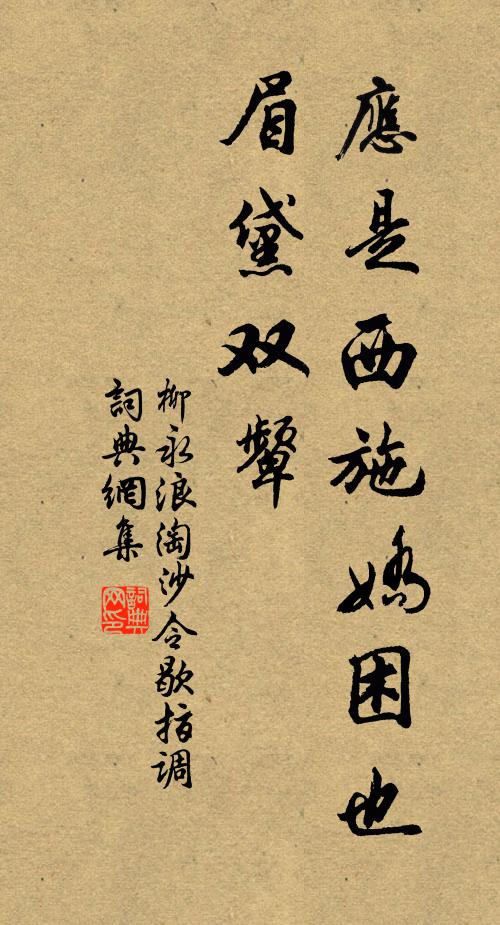 應是西施嬌困也
眉黛双顰
柳永浪淘沙令歇指调
詞典網集
詞典
网印